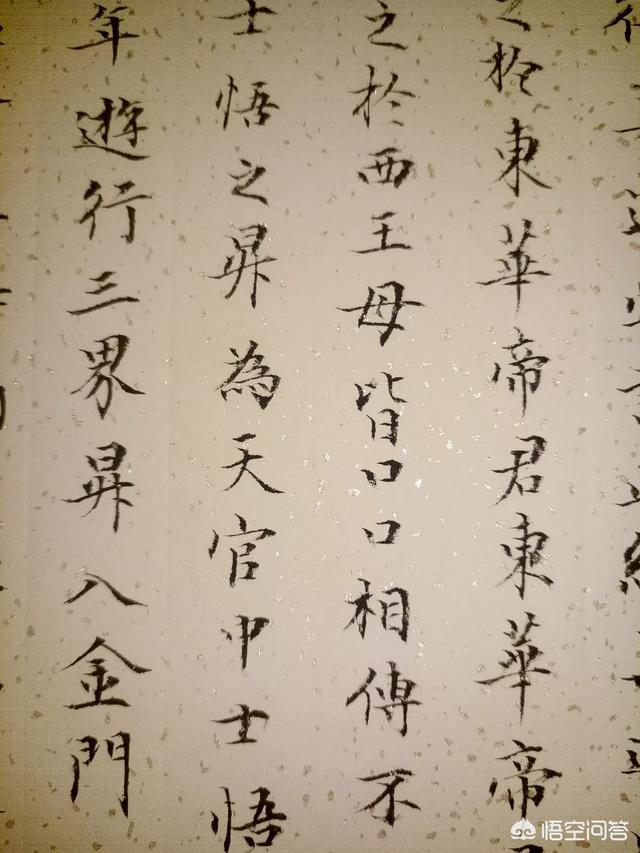 於東華帝君東華帝
之於西王母皆口口相傳不
士悟之昇為天官中士悟
年遊行三界昇入金門
悟空问答